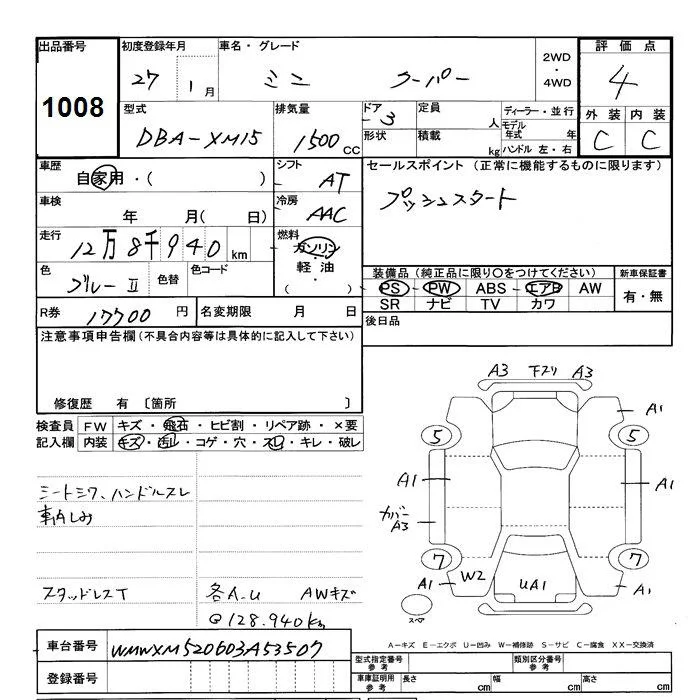 出品番号
1008
初度登録年月
27 1月
車名・グレード
ミニ クーパー
2WD
・
4WD
評価点
4
外装 内装
C C
型式
DBA-XM15
排気量
1500 CC
ドア 3
形状
定員 人
積載 kg
ディーラー・並行
モデル年式 年
ハンドル 左・右
車歴
自家用・( )
シフト
AT
セールスポイント (正常に機能するものに限ります)
プッシュスタート
車検
年 月( 日)
冷房
AAC
走行
12万8千940km
燃料
ガソリン
軽・油
( )
色
ブルーⅡ
色替
色コード
装備品(純正品に限り〇をつけてください)
PS PW ABS エアB AW
SR ナビ TV カワ
新車保証書
有・無
R券
17700円
名変期限 月 日
後日品
注意事項申告欄(不具合内容等は具体的に記入して下さい)
修復歴 有 〔箇所 〕
検査員
記入欄
FW キズ・飛石・ヒビ割・リペア跡・×要
内装 キズ・汚レ・コゲ・穴・スレ・キレ・破レ
シートシワ、ハンドルスレ
車内しみ
スタッドレスT
各A-U AWキズ
@128.940km
A3 下スリ A3
A1
5 5
A1 A1
カバー
A3
7 7
A1 W2 UA1 A1
スペア
A-キズ E-エクボ U-凹み W-補修跡 S-サビ C-腐食 XX-交換済
車台番号
WMWXM520603A53507
登録番号
型式指定番号
参考
類別区分番号
参考
車庫証明用
参考
長さ cm 幅 cm 高さ cm